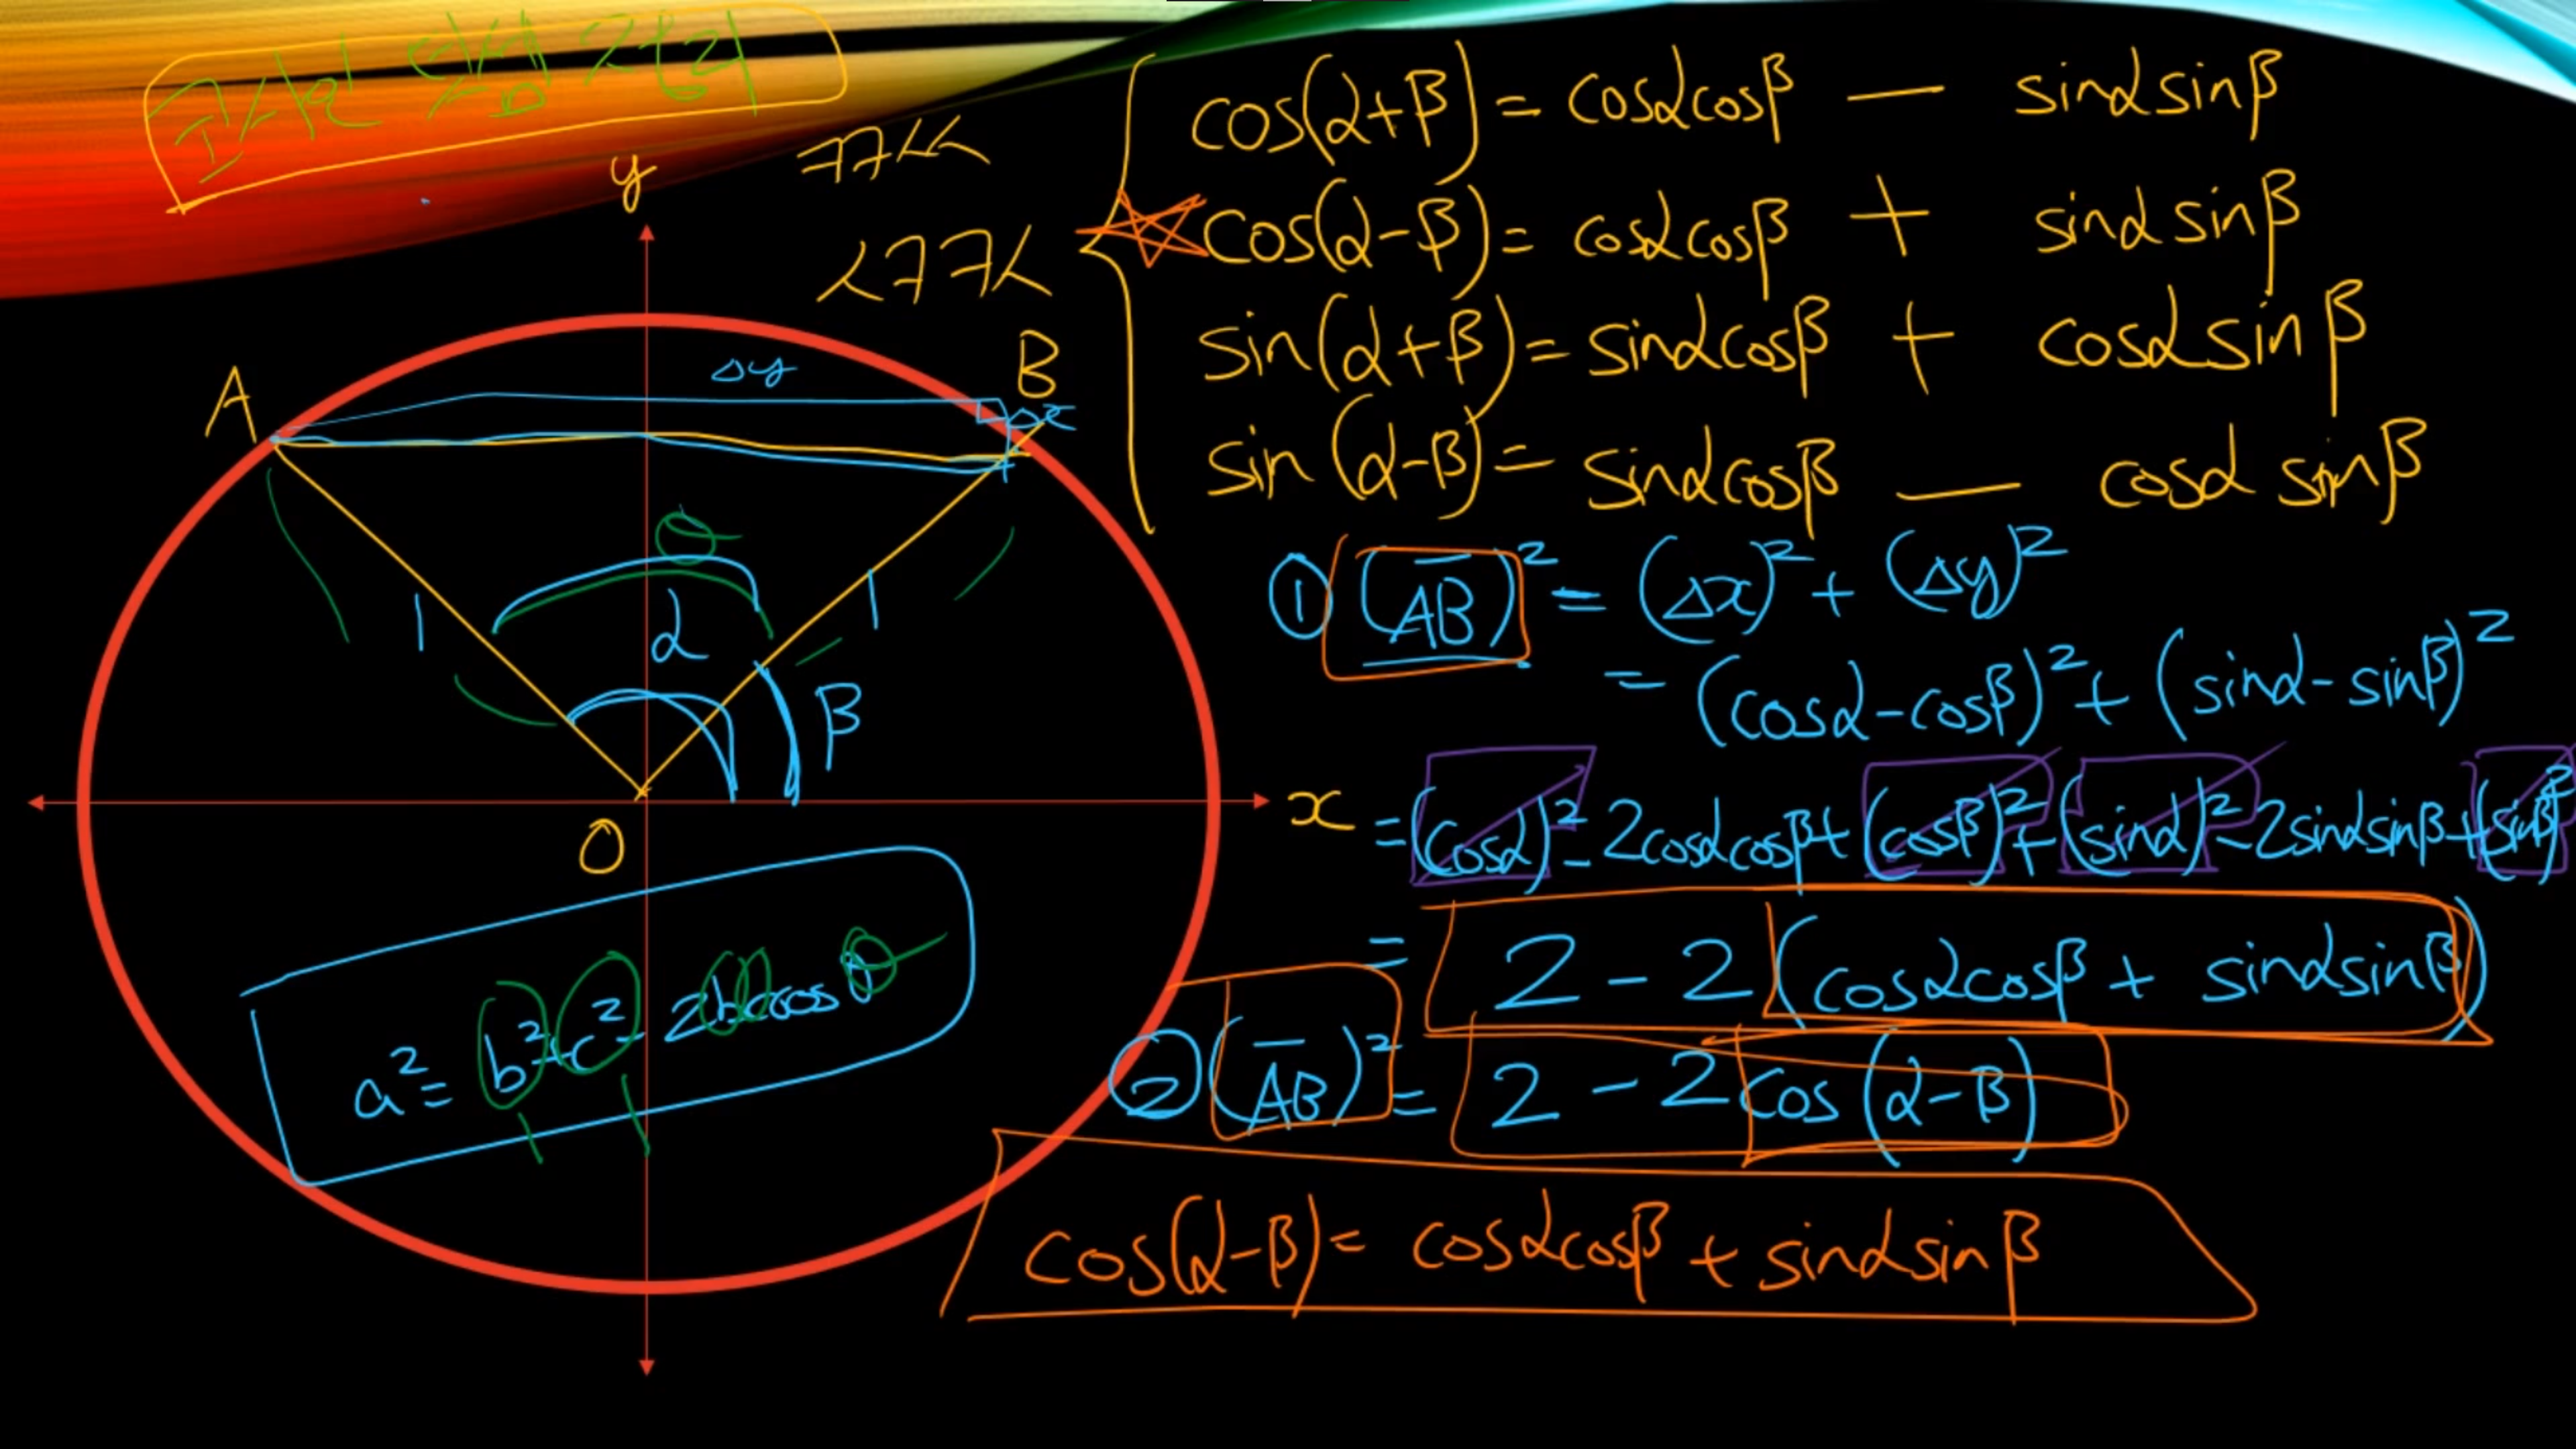 y
ㅋㅋㅅㅅ
ㅅㅋㅋㅅ
cos(α+β) = cosαcosβ − sinαsinβ
cos(α−β) = cosαcosβ + sinαsinβ
sin(α+β) = sinαcosβ + cosαsinβ
sin(α−β) = sinαcosβ − cosαsinβ
A
Δy
B
Δx
θ
1
α
1
β
O
x
a² = b²+c²−2bccosθ
1 1
① (AB̅)² = (Δx)² + (Δy)²
= (cosα−cosβ)² + (sinα−sinβ)²
= (cosα)² − 2cosαcosβ + (cosβ)² + (sinα)² − 2sinαsinβ + (sinβ)²
= 2 − 2(cosαcosβ + sinαsinβ)
② (AB̅)² = 2 − 2cos(α−β)
cos(α−β) = cosαcosβ + sinαsinβ